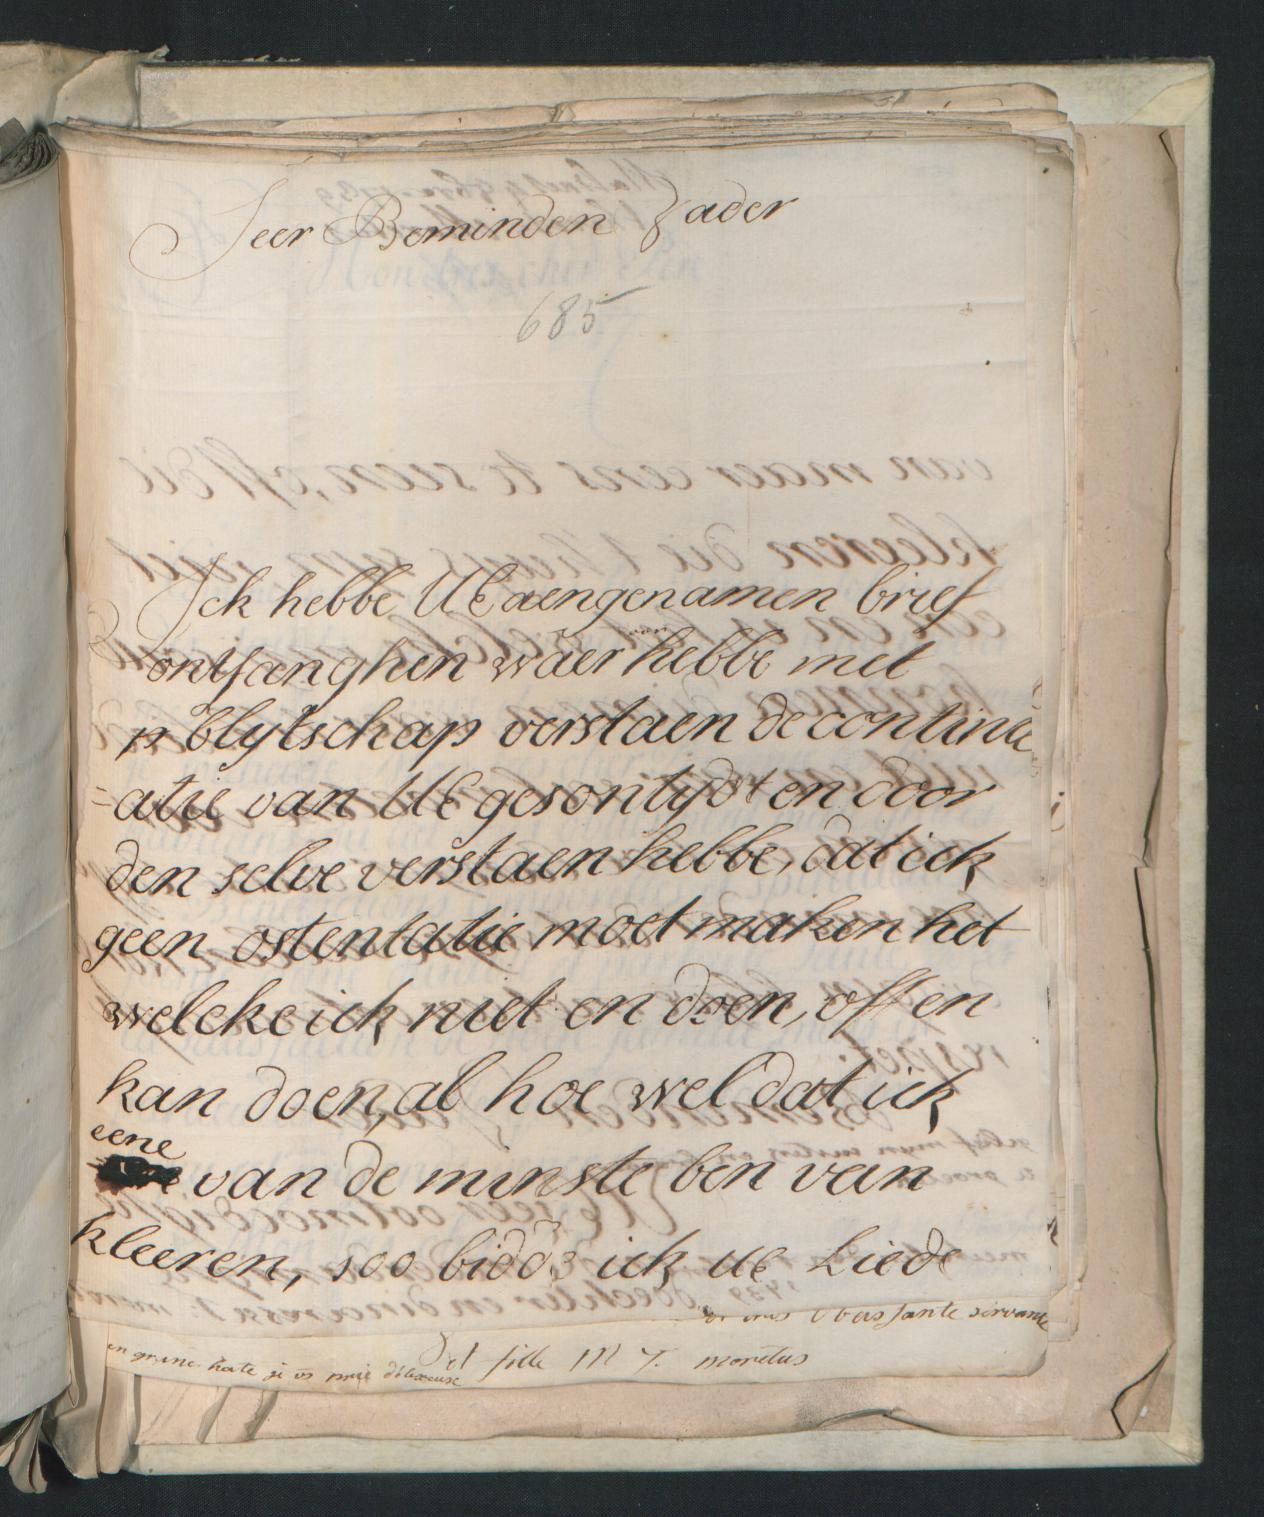 Seer Beminden Vader
685
Ick hebbe UE aengenamen brief
ontfanghen waer hebbe met
blytschap verstaen de continu
=atie van UE gesontydt en door
den selve verstaen hebbe, dat ick
geen ostentatie moet maken het
welcke ick niet en doen, off en
kan doen, al hoe wel dat ick
eene
van de minste ben van
kleeren, soo bidde ick ue Liede
obeissante servante
et fille M T. moretus
en grane hate je vs prie